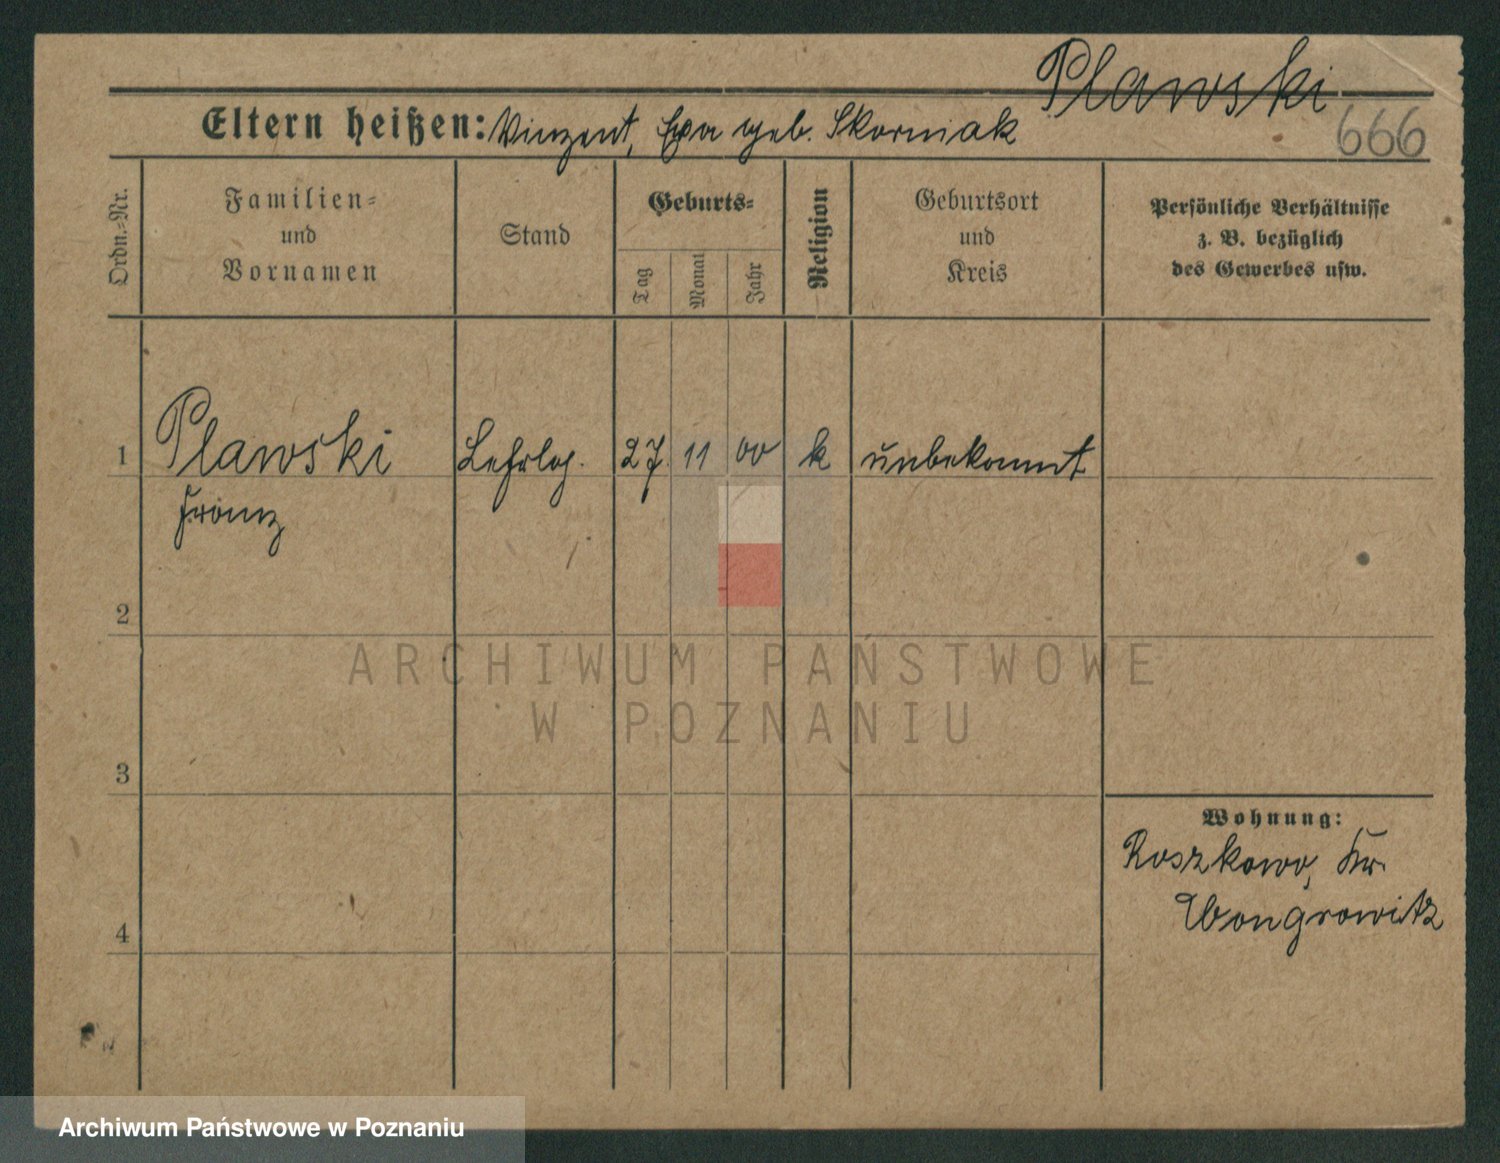 Plawski
Eltern heißen: Vinzent, Eva geb. Skorniak
666
Ordn.=Nr.
Familien=
und
Vornamen
Stand
Geburts=
Tag
Monat
Jahr
Religion
Geburtsort
und
Kreis
Persönliche Verhältnisse
z. B. bezüglich
des Gewerbes usw.
1 Plawski Lehrlg. 27. 11 00 k unbekannt
Franz
2
ARCHIWUM PAŃSTWOWE
W POZNANIU
3
Wohnung:
Roszkowo, Kr.
Wongrowitz
4
Archiwum Państwowe w Poznaniu